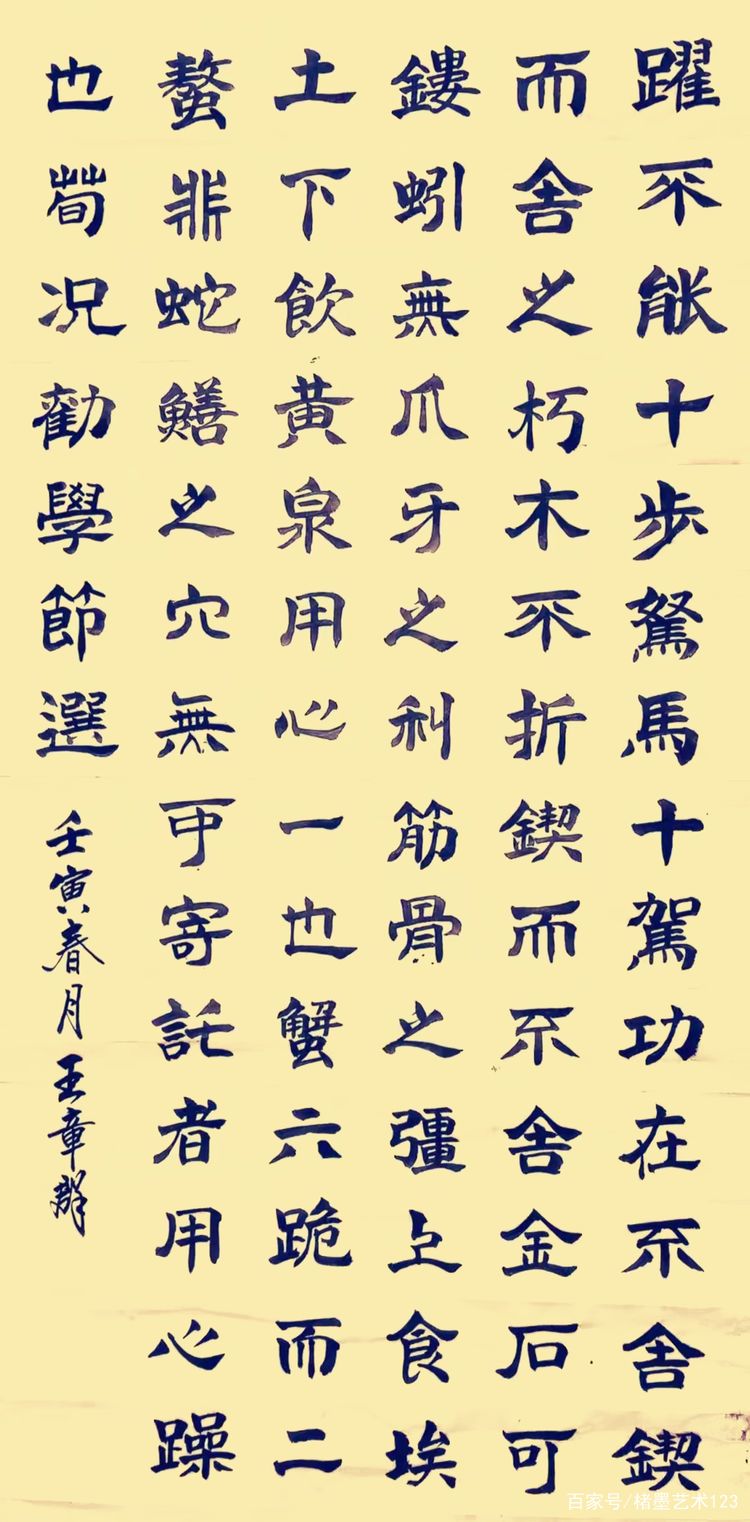 躍不能十步駑馬十駕功在不舍鍥
而舍之朽木不折鍥而不舍金石可
鏤蚓無爪牙之利筋骨之彊上食埃
土下飲黃泉用心一也蟹六跪而二
螯非蛇鱔之穴無可寄託者用心躁
也荀況勸學節選
壬寅春月王章群
百家号/楮墨艺术123